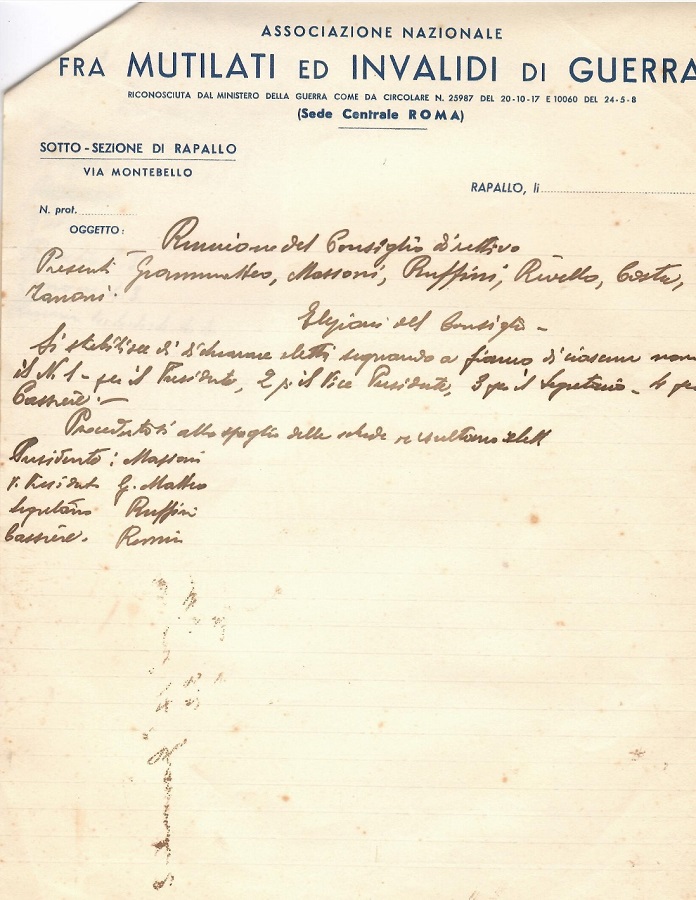 ASSOCIAZIONE NAZIONALE
FRA MUTILATI ED INVALIDI DI GUERRA
RICONOSCIUTA DAL MINISTERO DELLA GUERRA COME DA CIRCOLARE N. 25987 DEL 20-10-17 E 10060 DEL 24-5-8
(Sede Centrale ROMA)
SOTTO-SEZIONE DI RAPALLO
VIA MONTEBELLO
RAPALLO, li
N. prot.
OGGETTO:
Riunione del Consiglio direttivo
Presenti - Grammatteo, Massoni, Ruffini, Rivello, Costa,
Zanoni.
Elezioni del Consiglio -
Si stabilisce di dichiarare eletti segnando a fianco di ciascun nome
il N 1 - per il Presidente, 2 p. il Vice Presidente, 3 per il Segretario - 4 per
Cassiere. -
Procedutosi allo spoglio delle schede risultano elett
Presidente: Massoni
V. President G. Matteo
Segretario Ruffini
Cassiere.